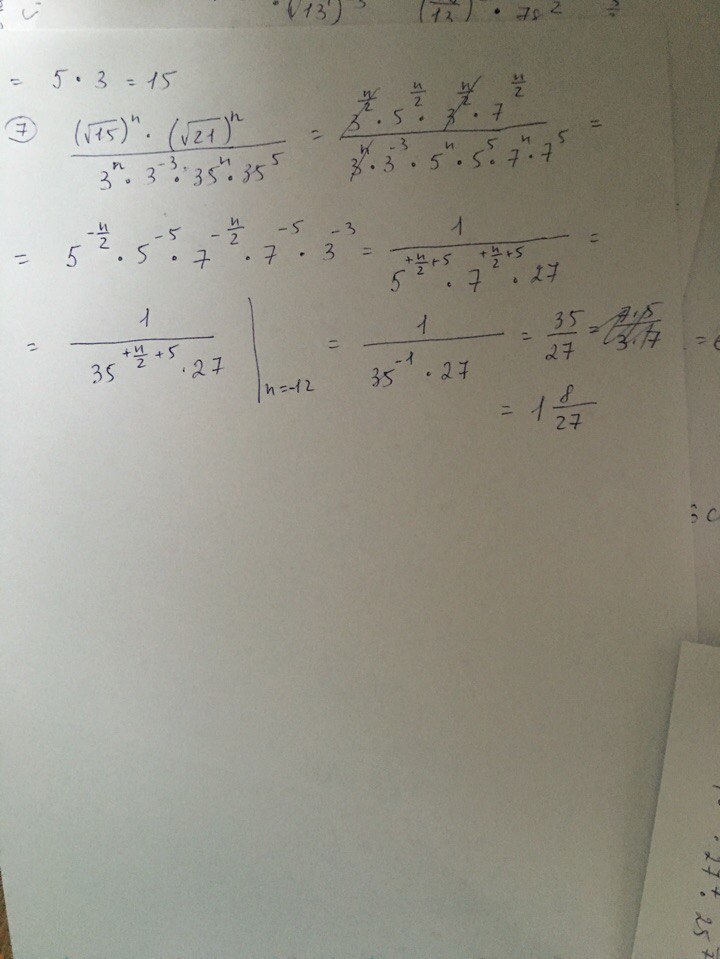 (√13) (/13) · 78²
= 5 · 3 = 15
⑦ ((√15)ⁿ · (√21)ⁿ)/(3ⁿ · 3⁻³ · 35ⁿ · 35⁵) = (3^(n/2) · 5^(n/2) · 3^(n/2) · 7^(n/2))/(3ⁿ · 3⁻³ · 5ⁿ · 5⁵ · 7ⁿ · 7⁵) =
= 5^(-n/2) · 5⁻⁵ · 7^(-n/2) · 7⁻⁵ · 3⁻³ = 1/(5^(+n/2+5) · 7^(+n/2+5) · 27) =
= 1/(35^(+n/2+5) · 27) |n=-12 = 1/(35⁻¹ · 27) = 35/27 =
= 1 8/27
27+
257